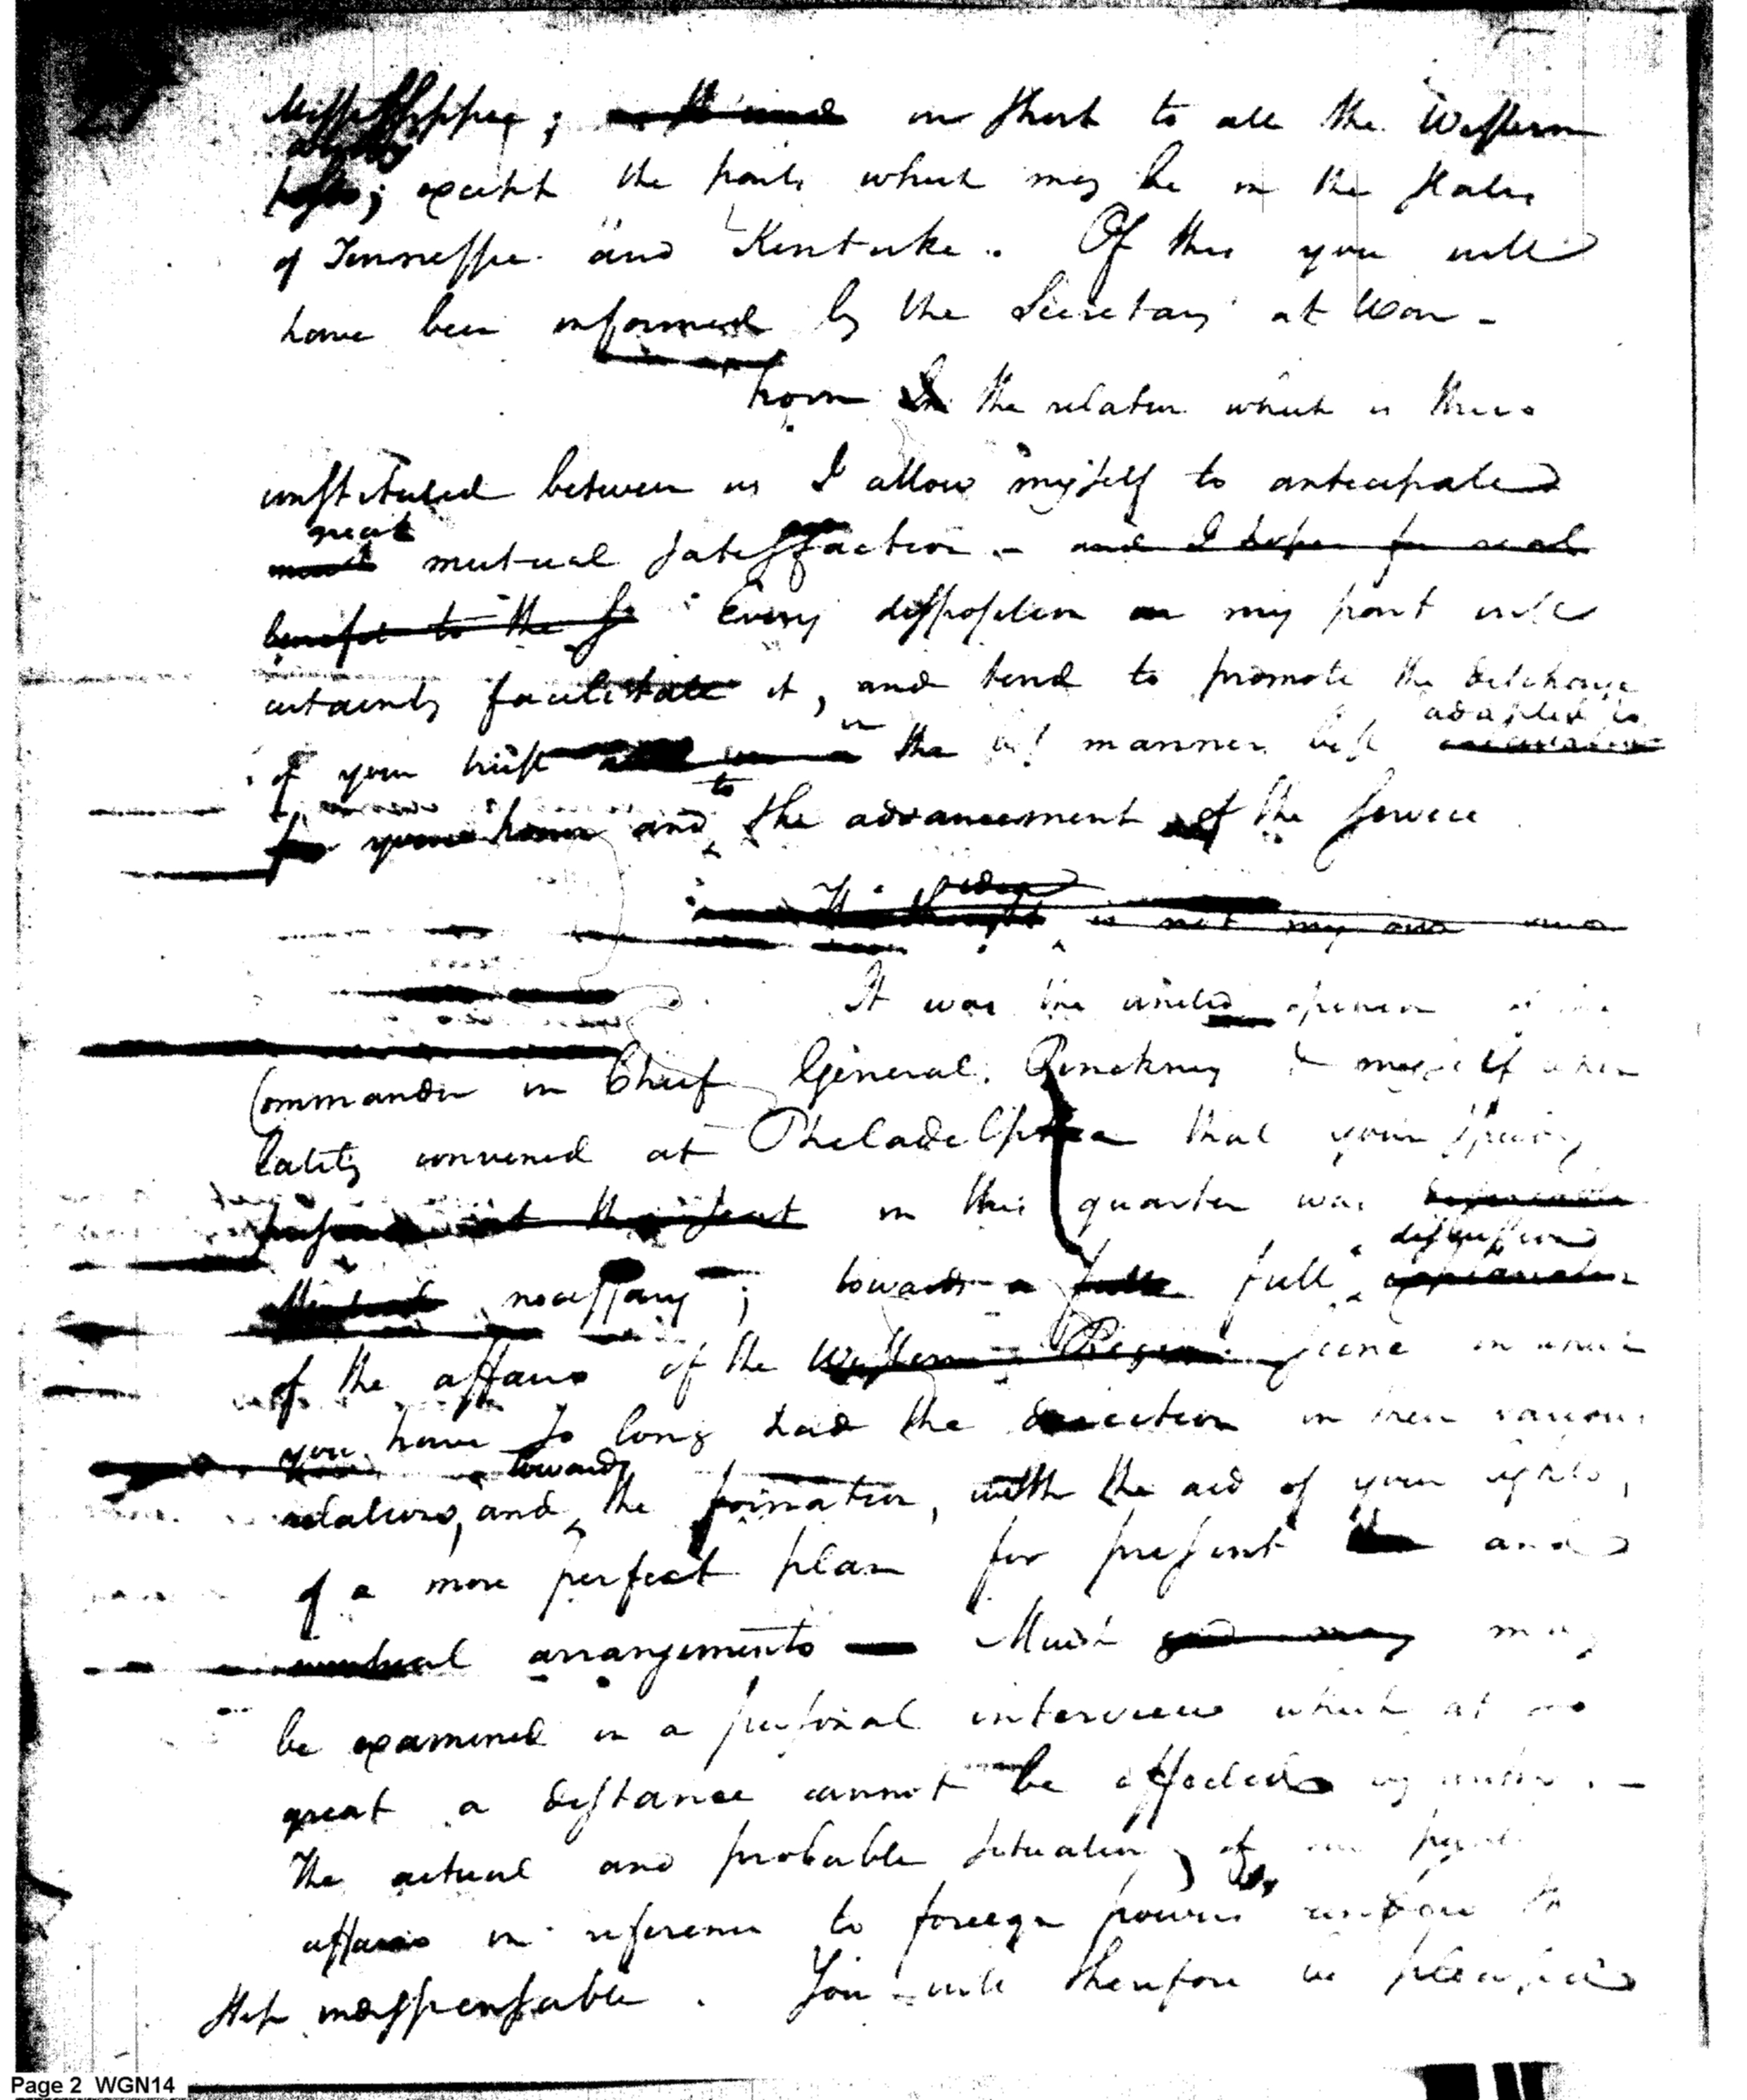 Missisippi; in short to all the Western
posts; except the posts which may be in the States
of Tennessee and Kentuke. Of this you will
have been informed by the Secretary at War -
From the relation which is thus
constituted between us I allow myself to anticipate
great
mutual satisfaction - and I hope for real
benefit to the Every disposition on my part will
certainly facilitate it, and tend to promote the discharge
adapted to
of your trust in the manner best
your honor and to the advancement of the service
idea
is not my own
It was the united opinion of the
Commander in Chief General Pinckney & myself when
lately convened at Philadelphia that your speedy
in this quarter was
discussion
necessary; towards a full full
of the affairs of the Western Region scene in which
you have so long had the direction in their various
towards
relations, and the formation, with the aid of your lights,
of a more perfect plan for present and
eventual arrangements — Much may
be examined in a personal interview which at so
great a distance cannot be effected by writing. -
The actual and probable situation of our public
affairs in reference to foreign powers renders the
step indispensable. You will therefore be pleased
Page 2 WGN14